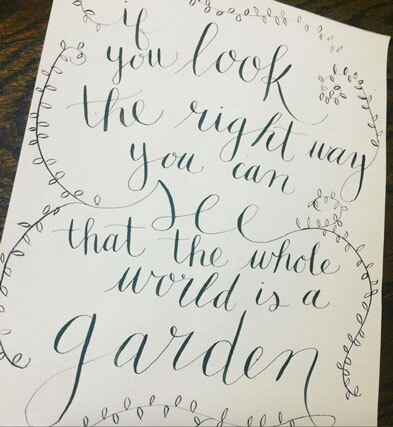 if
you look
the right way
you can
see
that the whole
world is a
garden